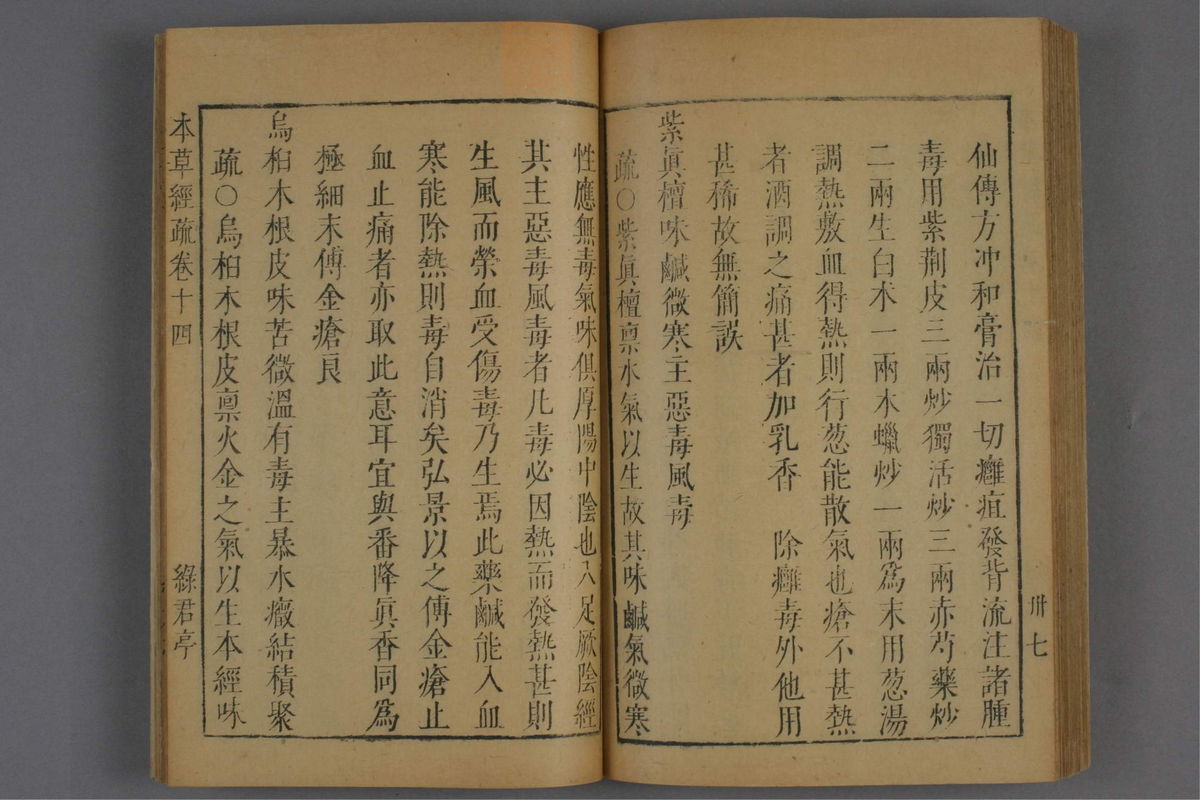 卅七
仙傳方冲和膏治一切癰疽發背流注諸腫
毒用紫荆皮三兩炒獨活炒三兩赤芍藥炒
二兩生白术一兩木蠟炒一兩爲末用葱湯
調熱敷血得熱則行葱能散氣也瘡不甚熱
者酒調之痛甚者加乳香 除癰毒外他用
甚稀故無簡誤
紫眞檀味鹹微寒主惡毒風毒
疏〇紫眞檀禀水氣以生故其味鹹氣微寒
性應無毒氣味俱厚陽中陰也入足厥陰經
其主惡毒風毒者凡毒必因熱而發熱甚則
生風而榮血受傷毒乃生焉此藥鹹能入血
寒能除熱則毒自消矣弘景以之傅金瘡止
血止痛者亦取此意耳宜與番降眞香同爲
極細末傅金瘡良
烏桕木根皮味苦微溫有毒主暴水癥結積聚
疏〇烏桕木根皮禀火金之氣以生本經味
本草經疏卷十四 綠君亭